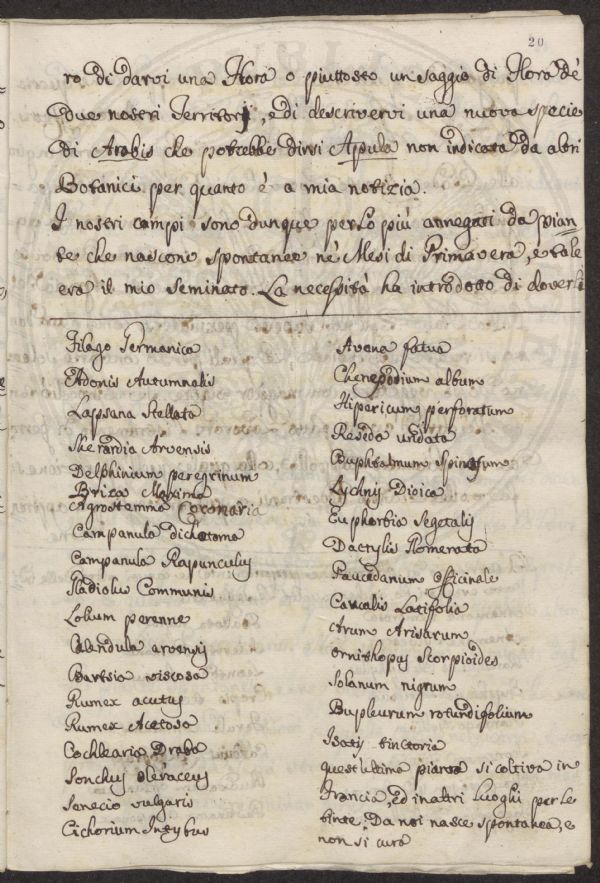 20
ro di darvi una Flora o piuttosto un saggio di Flora de'
due nostri Territorj, e di descrivervi una nuova specie
di Arabis che potrebbe dirsi Apula non indicata da altri
Botanici per quanto è a mia notizia.
I nostri campi sono dunque per lo più annegati da pian=
te che nascono spontanee ne' Mesi di Primavera, e tale
era il mio seminato. La necessità ha introdotto di doverli
Filago Germanica
Adonis Autumnalis
Lapsana Stellata
Sherardia Arvensis
Delphinium peregrinum
Briza Maxima
Agrostemma Coronaria
Campanula dichotoma
Campanula Rapunculus
Gladiolus Communis
Lolium perenne
Calendula arvensis
Bartsia viscosa
Rumex acutus
Rumex Acetosa
Cochlearia Draba
Sonchus oleraceus
Senecio vulgaris
Cichorium Intybus
Avena fatua
Chenepodium album
Hipericum perforatum
Reseda undata
Buphtalmum Spinosum
Lychnis Dioica
Euphorbia Segetalis
Dactylis Glomerata
Paucedanum officinale
Caucalis Latifolia
Arum Arisarum
Ornithopus Scorpioides
Solanum nigrum
Bupleurum rotundifolium
Isatis tinctoria
quest'ultima pianta si coltiva in
Francia, ed in altri luoghi per le
tinte. Da noi nasce spontanea, e
non si cura